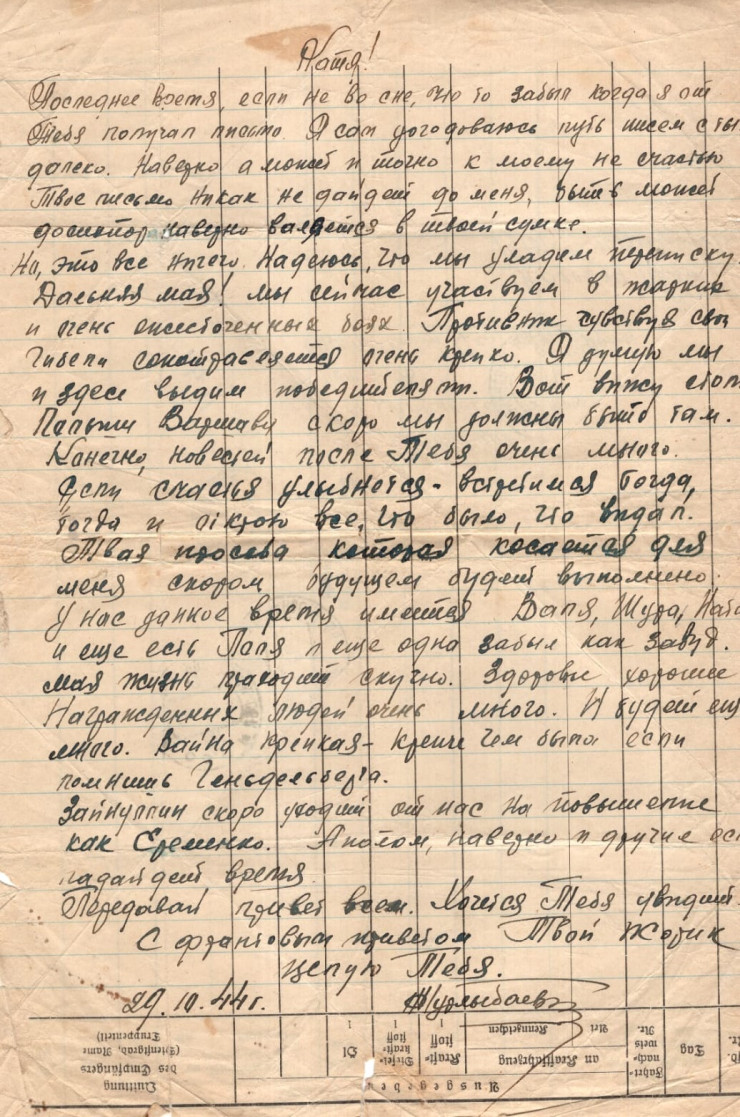 Катя!
Последнее время, если не во сне, что то забыл когда я от
Тебя получал письмо. Я сам догодоваюсь путь писем с ты
далеко. Наверно а может и точно к моему не счастью
Твое письмо никак не дайдет до меня, быть может
до сих пор наверно валяется в твоей сумке.
Но, это все ничего. Надеюсь, что мы уладим переписку.
Далькая мая! мы сейчас участвуем в жарких
и очень ожесточенных боях. Противник чувствуя свои
гибели сопотравляется очень крепко. Я думую мы
и здесь выдим победителями. Вот вижу стол
Польши Варшаву скоро мы должны быть там.
Канечно, новестей после Тебя очень много.
Если счастья улыбнется - встретимся тогда,
тогда и открою все, что было, что видал.
Твая просьба которая косается для
меня скором будущем будет выполнено.
У нас данное время имеется Валя, Шура, Ната
и еще есть Лапя и еще одна забыл как завуд.
мая жизнь праходит скучно. Здоровье хорошее
Награжденных людей очень много. И будет ещ
много. Вайна крепкая - крепче чем была если
помнишь Геньдельберга.
Зайнуллин скоро уходит от нас на повышение
как Еременко. А потом, наверно и другие ост
падайдет время.
Передавай привет всем. Хочется Тебя увидит.
С франтовым приветом Твой Жорик
целую Тебя.
29.10.44г. Нурлыбаев
Quittung
des Empfängers
(Dienstgrad, Name
Truppenteil)
Öl
l
Diesel-
kraft-
stoff
l
Kraft-
stoff
l
an Kraftfahrzeug
Kennzeichen
Art
Fahrt-
nach-
weis
Nr.
Tag
Ausgegeben